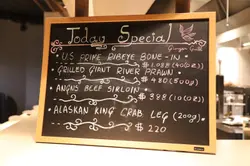 Today Special
• U.S PRIME RIBEYE BONE-IN
$1,088 (400g)
• GRILLED GIANT RIVER PRAWN
$480 (500g)
• ANGUS BEEF SIRLOIN
$388 (100g)
• ALASKAN KING CRAB LEG (200g)
$220